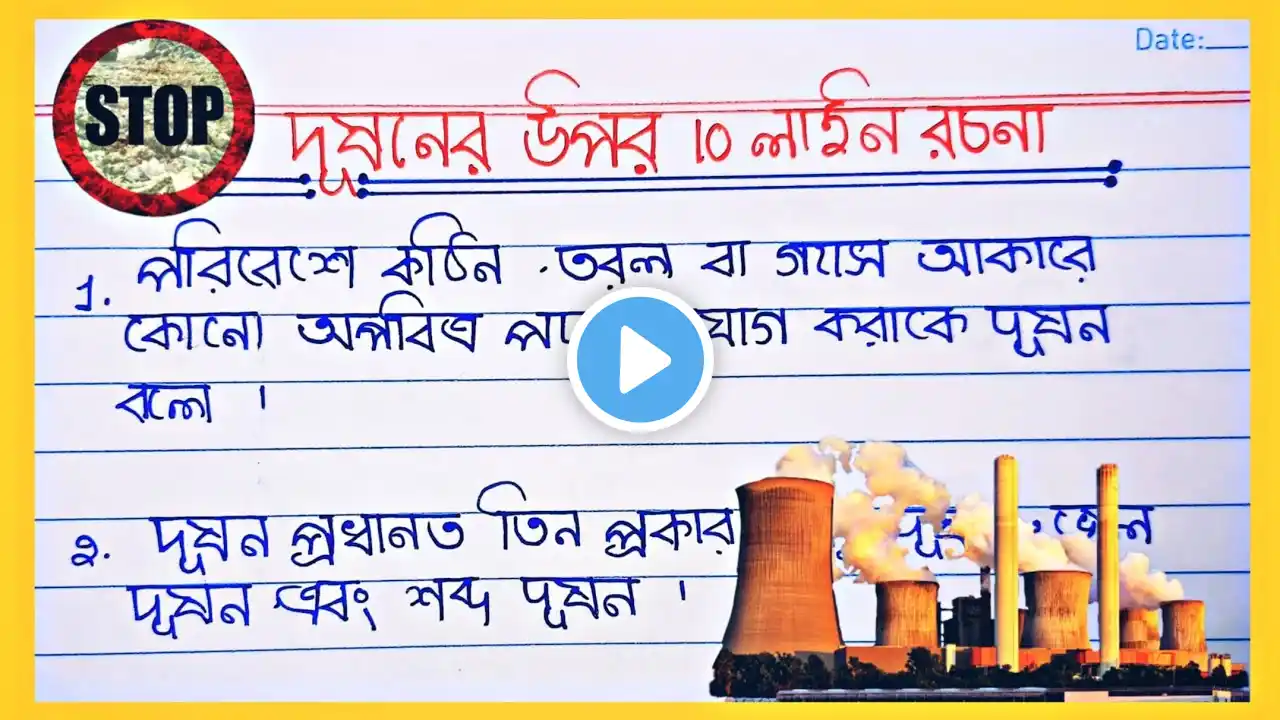 Date:
STOP
দূষনের উপর 10 লাইন রচনা
1. পরিবেশে কঠিন তরল বা গ্যাস আকারে
কোনো অপবিত্র যোগ করাকে দূষন
বলে ।
২. দূষন প্রধানত তিন প্রকার
দূষন এবং শব্দ দূষন ।